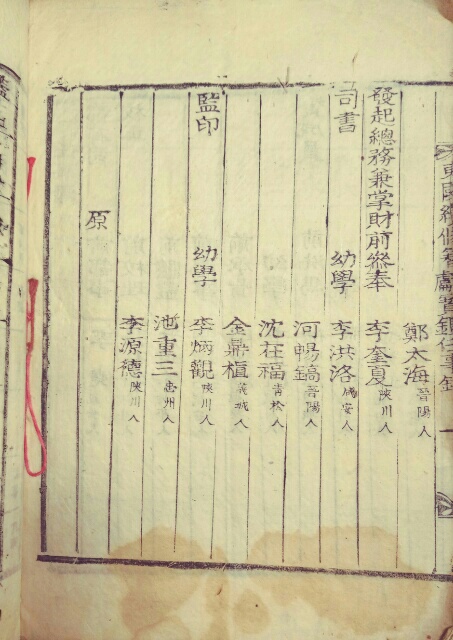 東國續修 獻寶鑑任事錄
鄭太海 晉陽人
發起總務兼掌財前參奉 李奎夏 陜川人
司書 幼學 李洪洛 咸安人
河暢鎬 晉陽人
沈在福 靑松人
金鼎樞 義城人
監印 幼學 李炳觀 陜川人
池重三 忠州人
李源德 陜川人
原